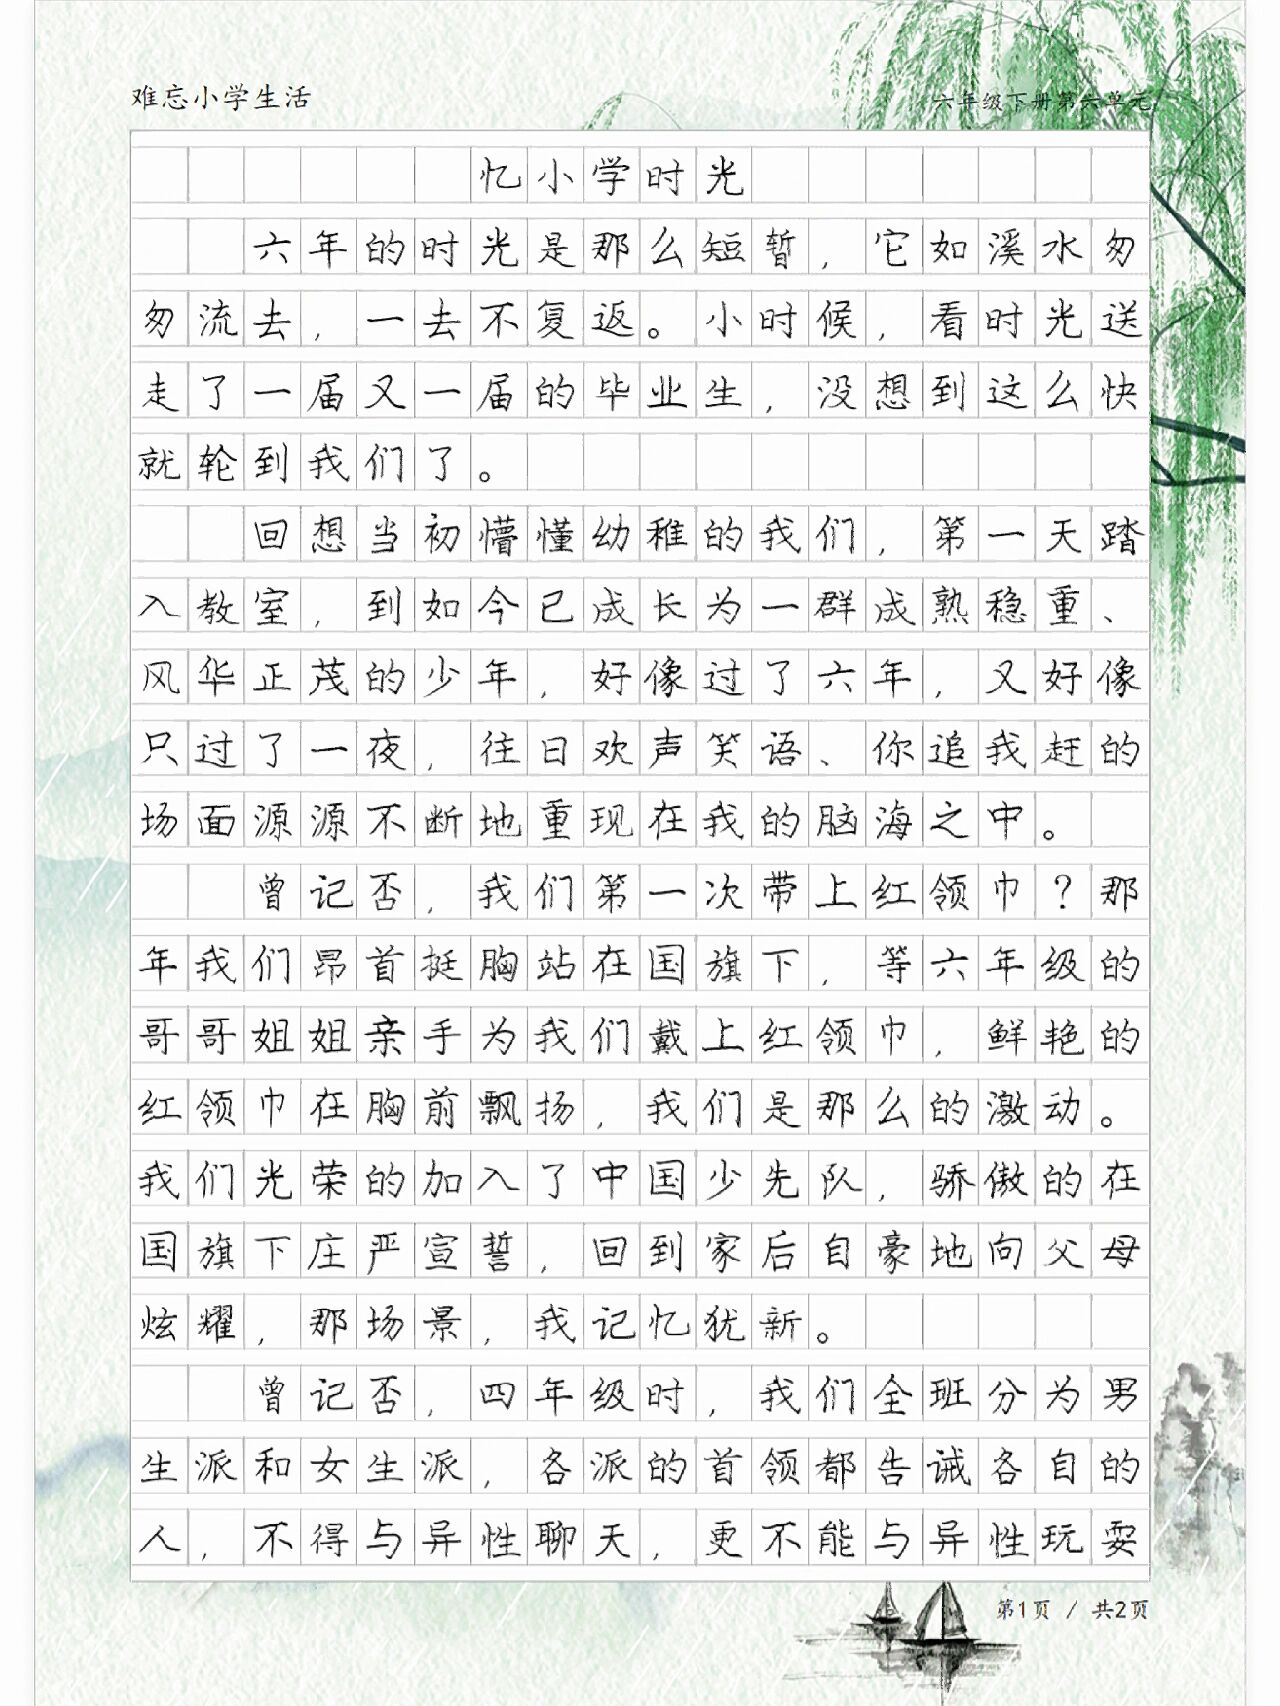 难忘小学生活
六年级下册第六单元
忆小学时光
六年的时光是那么短暂，它如溪水匆
匆流去，一去不复返。小时候，看时光送
走了一届又一届的毕业生，没想到这么快
就轮到我们了。
回想当初懵懂幼稚的我们，第一天踏
入教室，到如今已成长为一群成熟稳重、
风华正茂的少年，好像过了六年，又好像
只过了一夜，往日欢声笑语、你追我赶的
场面源源不断地重现在我的脑海之中。
曾记否，我们第一次带上红领巾？那
年我们昂首挺胸站在国旗下，等六年级的
哥哥姐姐亲手为我们戴上红领巾，鲜艳的
红领巾在胸前飘扬，我们是那么的激动。
我们光荣的加入了中国少先队，骄傲的在
国旗下庄严宣誓，回到家后自豪地向父母
炫耀，那场景，我记忆犹新。
曾记否，四年级时，我们全班分为男
生派和女生派，各派的首领都告诫各自的
人，不得与异性聊天，更不能与异性玩耍
第1页 / 共2页